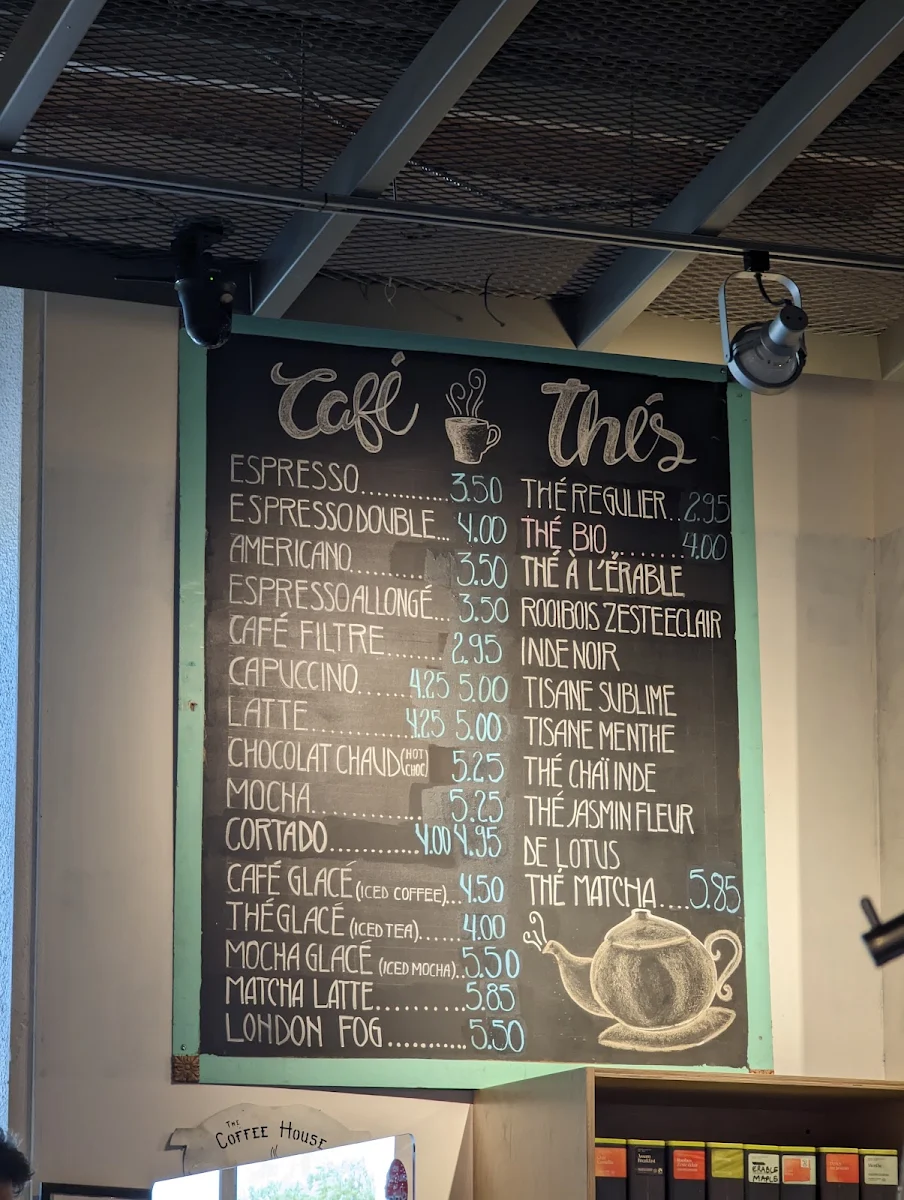 Café
ESPRESSO............3.50
ESPRESSO DOUBLE... 4.00
AMERICANO.......... 3.50
ESPRESSO ALLONGÉ... 3.50
CAFÉ FILTRE........ 2.95
CAPUCCINO......4.25 5.00
LATTE............4.25 5.00
CHOCOLAT CHAUD (HOT CHOC) 5.25
MOCHA............. 5.25
CORTADO...........4.00 4.95
CAFÉ GLACÉ (ICED COFFEE)...4.50
THÉ GLACÉ (ICED TEA)...... 4.00
MOCHA GLACÉ (ICED MOCHA)..5.50
MATCHA LATTE..........5.85
LONDON FOG..........5.50
Thés
THÉ REGULIER..2.95
THÉ BIO........4.00
THÉ À L'ÉRABLE
ROOIBOIS ZESTE ECLAIR
INDE NOIR
TISANE SUBLIME
TISANE MENTHE
THÉ CHAÏ INDE
THÉ JASMIN FLEUR
DE LOTUS
THÉ MATCHA....5.85
THE
COFFEE HOUSE
ÉRABLE
MAPLE